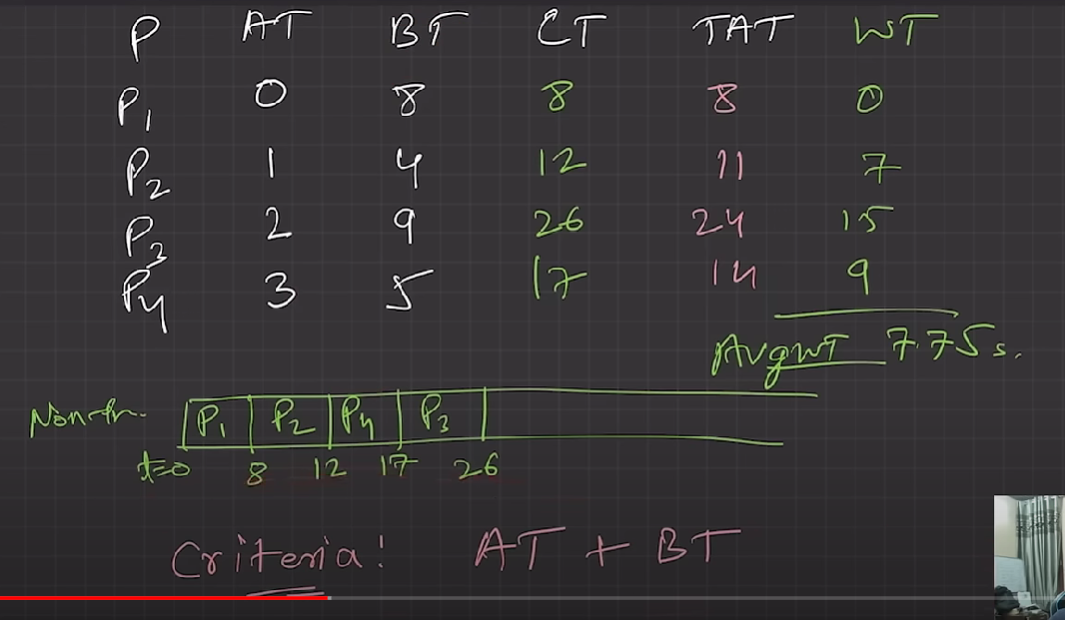 P AT BT CT TAT WT
P1 0 8 8 8 0
P2 1 4 12 11 7
P3 2 9 26 24 15
P4 3 5 17 14 9
AvgWT 7.75s.
P1 P2 P4 P3
t=0 8 12 17 26
Criteria! AT + BT